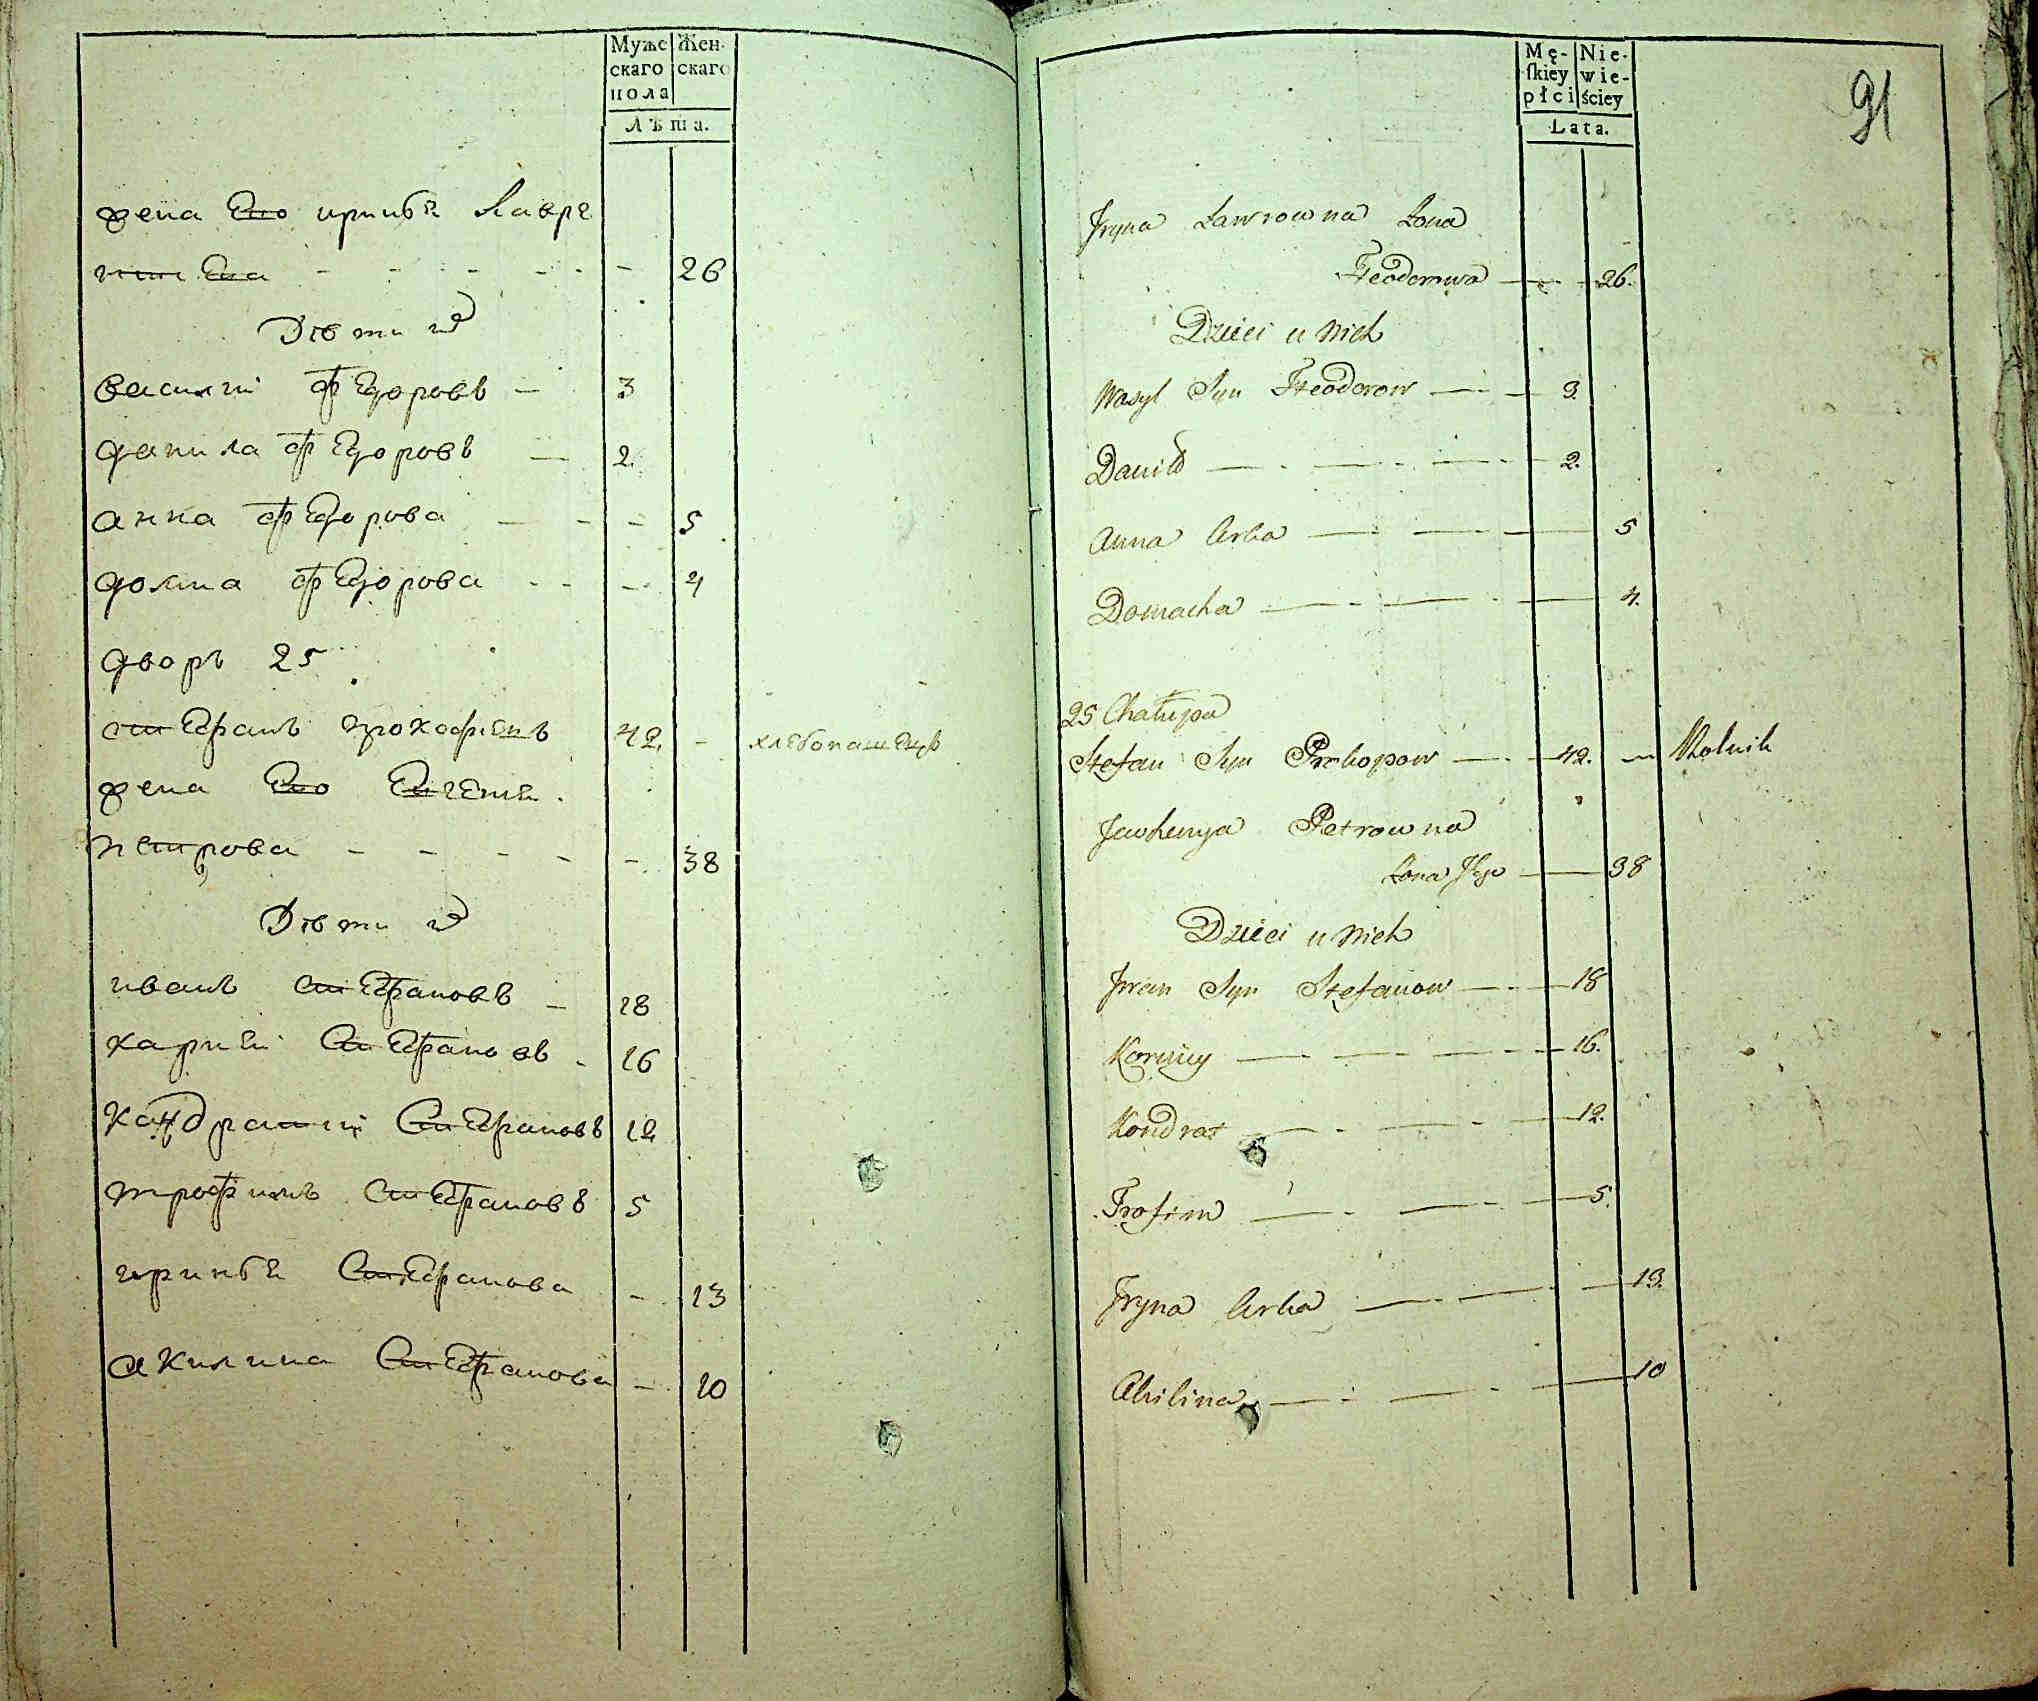 Муже Жен-
скаго скаго
пола
Лѣта.
жена Его ирина Лавре
нтиева - - - - - - 26
Дѣти их
василий федоровъ - 3
данила федоровъ - 2.
анна федорова - - - 5
домна федорова - - - 4
дворъ 25
стефанъ прокофиевъ 42. - хлебопашецъ
жена Его Евгения
петрова - - - - - 38
Дѣти их
иванъ Стефановъ - 18
карней Стефановъ - 16
кандратий Стефановъ 12
трофимъ Стефановъ 5
ирина Стефанова - 13
акилина Стефанова - 10
Mę- Nie-
skiey wie-
płci ściey
Lata.
91
Jryna Ławrowna Żona
Fteodorowa — 26.
Dzieci u Nich
Wasyl Syn Fteodorow — 3.
Daniło — 2.
Anna Corka — 5
Domacha — 4.
25 Chałupa
Stefan Syn Prokopow — 42. — Rolnik
Jewhenya Petrowna
Żona Jego — 38
Dzieci u Nich
Jwan Syn Stefanow — 18
Korniey — 16.
Kondrat — 12.
Trofim — 5.
Jryna Corka — 13.
Akilina — 10